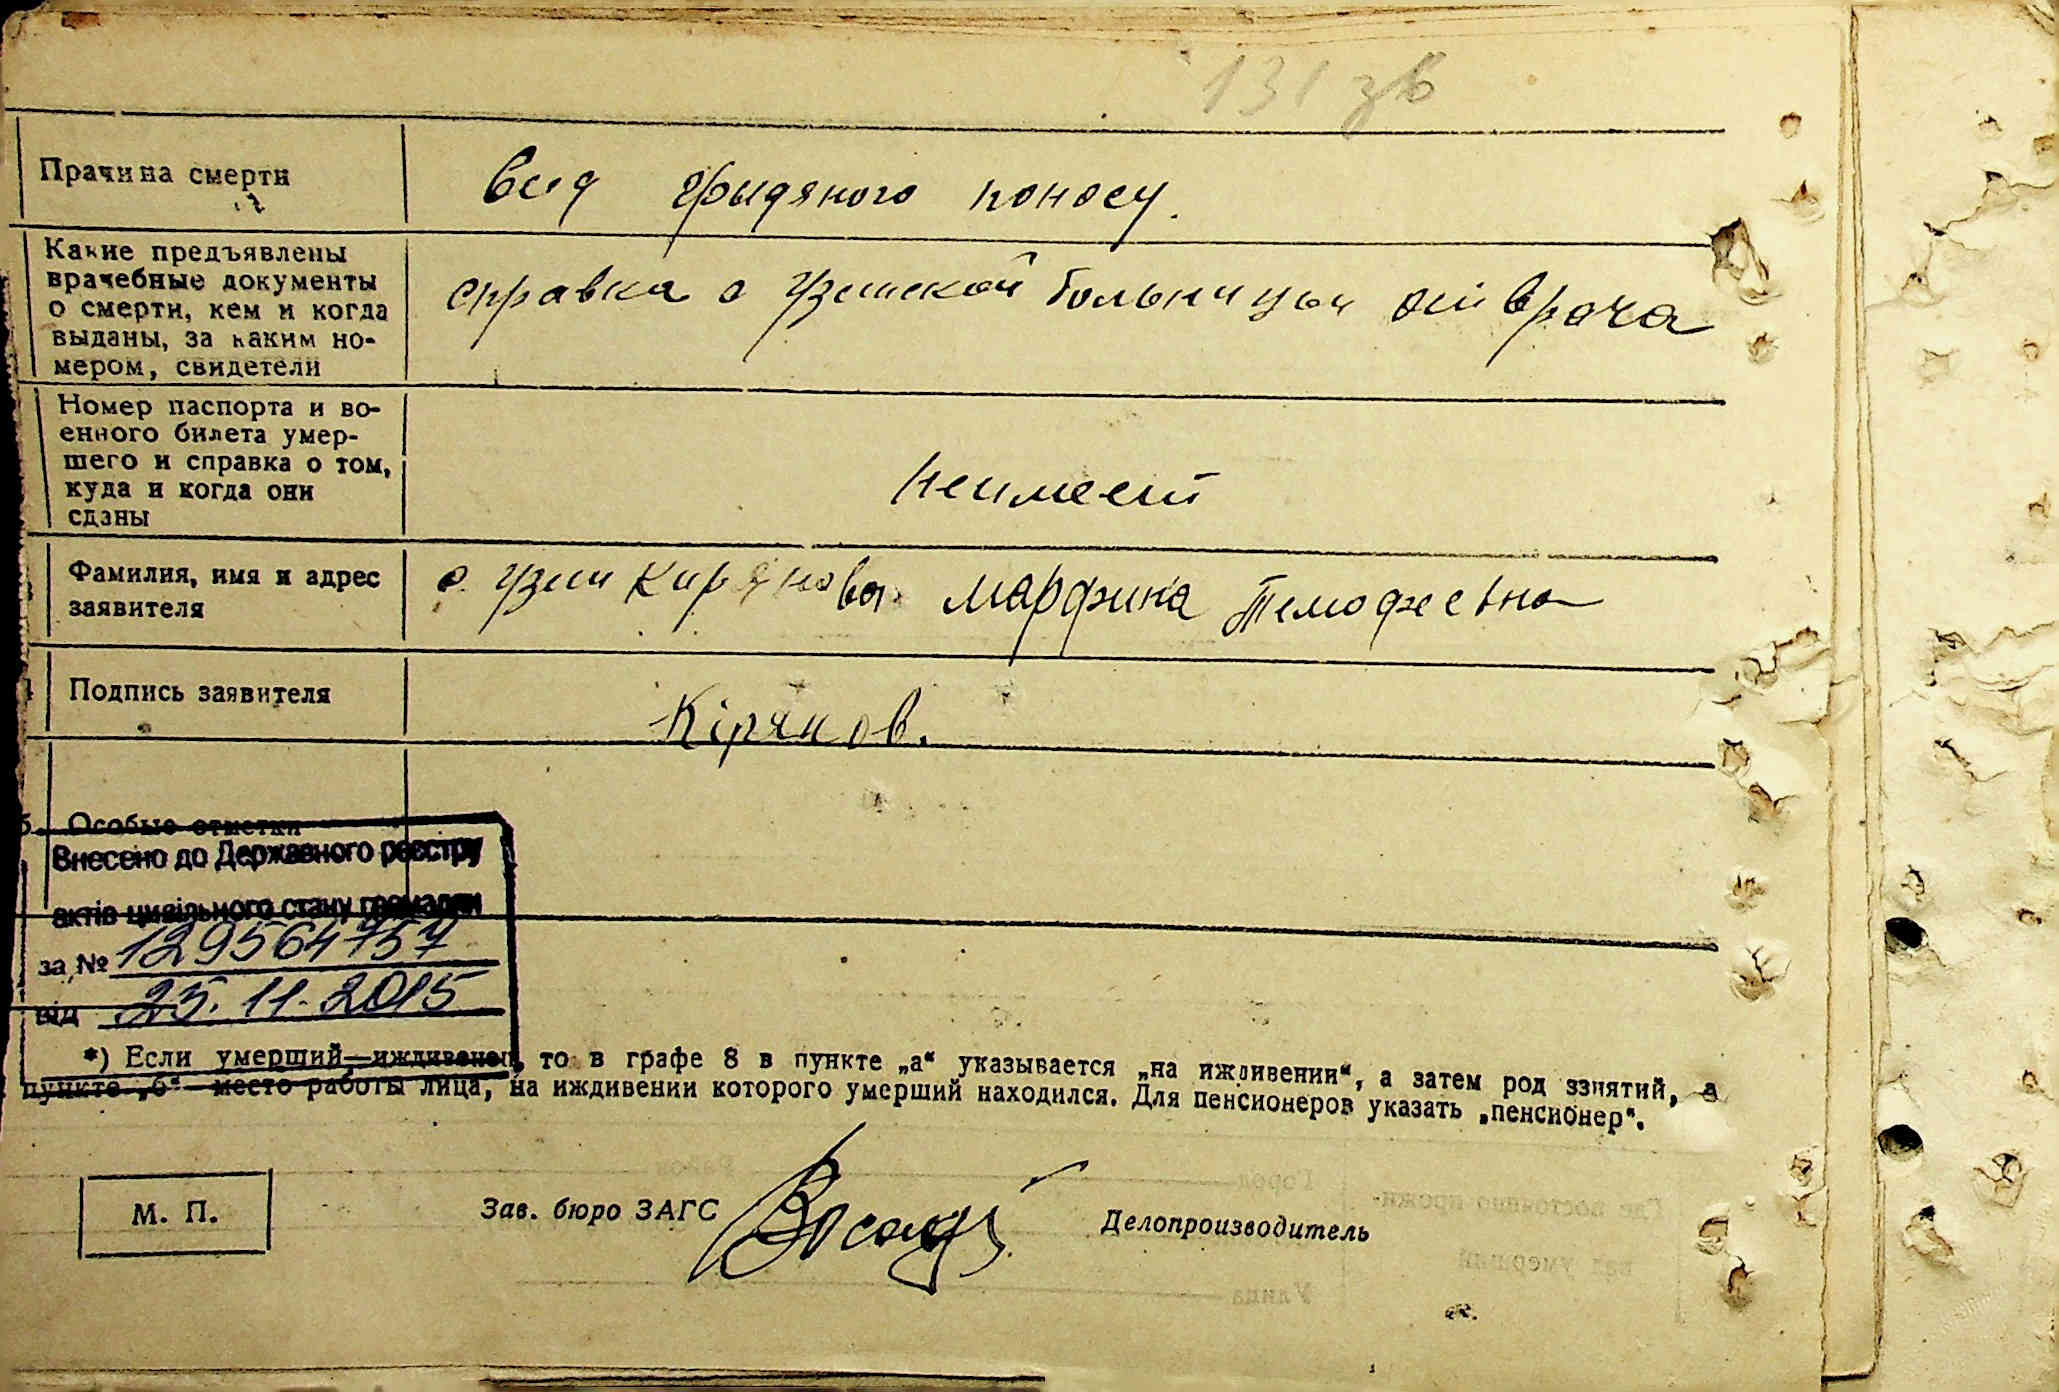 131 зв
Прачина смерти
Вид грыдяного поносу.
Какие предъявлены
врачебные документы
о смерти, кем и когда
выданы, за каким но-
мером, свидетели
справка с Узинской больницы от врача
Номер паспорта и во-
енного билета умер-
шего и справка о том,
куда и когда они
сданы
неимеет
Фамилия, имя и адрес
заявителя
с. Узин Кирянова Марфина Темофеевна
Подпись заявителя
Кірянов.
Особые отметки
Внесено до Державного реєстру
актів цивільного стану громадян
за № 129564757
від 25.11.2015
*) Если умерший—иждивенец, то в графе 8 в пункте „а“ указывается „на иждивении“, а затем род занятий, в
пункте „б“ место работы лица, на иждивении которого умерший находился. Для пенсионеров указать „пенсионер“.
М. П.
Зав. бюро ЗАГС
Делопроизводитель